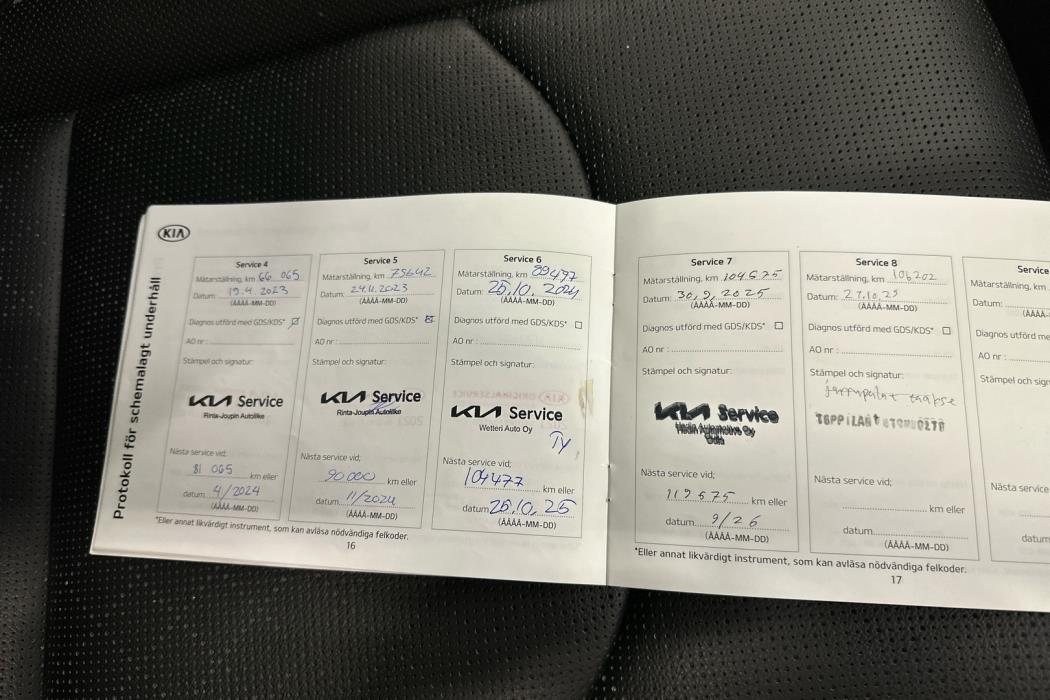 KIA
Protokoll för schemalagt underhåll
Service 4
Mätarställning, km 66 065
Datum: 19.4 2023
(ÅÅÅÅ-MM-DD)
Diagnos utförd med GDS/KDS*
AO nr:
Stämpel och signatur:
KIA Service
Rinta-Joupin Autoliike
Nästa service vid;
81 065 km eller
datum 4/2024
(ÅÅÅÅ-MM-DD)
Service 5
Mätarställning, km 75642
Datum: 24.11.2023
(ÅÅÅÅ-MM-DD)
Diagnos utförd med GDS/KDS*
AO nr:
Stämpel och signatur:
KIA Service
Rinta-Joupin Autoliike
Nästa service vid;
90 000 km eller
datum 11/2024
(ÅÅÅÅ-MM-DD)
Service 6
Mätarställning, km 89477
Datum: 25.10.2024
(ÅÅÅÅ-MM-DD)
Diagnos utförd med GDS/KDS*
AO nr:
Stämpel och signatur:
KIA Service
Wetteri Auto Oy
TY
Nästa service vid;
104477 km eller
datum 25.10.25
(ÅÅÅÅ-MM-DD)
*Eller annat likvärdigt instrument, som kan avläsa nödvändiga felkoder.
16
Service 7
Mätarställning, km 104575
Datum: 30.9.2025
(ÅÅÅÅ-MM-DD)
Diagnos utförd med GDS/KDS*
AO nr:
Stämpel och signatur:
KIA Service
Hedin Automotive Oy
Oulu
Nästa service vid;
119575 km eller
datum 9/26
(ÅÅÅÅ-MM-DD)
Service 8
Mätarställning, km 106202
Datum: 27.10.25
Diagnos utförd med GDS/KDS*
AO nr:
Stämpel och signatur:
Jarrupalat taakse
Nästa service vid;
km eller
datum
(ÅÅÅÅ-MM-DD)
*Eller annat likvärdigt instrument, som kan avläsa nödvändiga felkoder.
17
Service
Mätarställning, km
Datum:
Diagnos utförd med
AO nr:
Stämpel och
Nästa service
datum